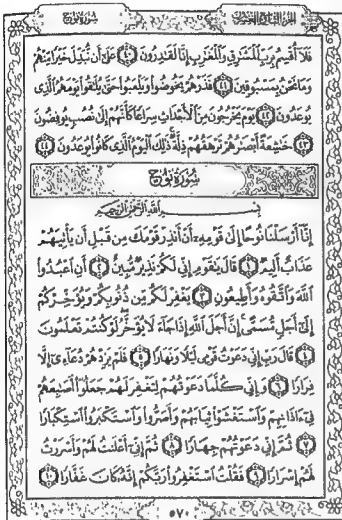 سُورَةُ نُوحٍ الجزء التاسع والعشرون
فَلَا أُقْسِمُ بِرَبِّ الْمَشَارِقِ وَالْمَغَارِبِ إِنَّا لَقَادِرُونَ ٤٠ عَلَىٰ أَن نُّبَدِّلَ خَيْرًا مِّنْهُمْ
وَمَا نَحْنُ بِمَسْبُوقِينَ ٤١ فَذَرْهُمْ يَخُوضُوا وَيَلْعَبُوا حَتَّىٰ يُلَاقُوا يَوْمَهُمُ الَّذِي
يُوعَدُونَ ٤٢ يَوْمَ يَخْرُجُونَ مِنَ الْأَجْدَاثِ سِرَاعًا كَأَنَّهُمْ إِلَىٰ نُصُبٍ يُوفِضُونَ
٤٣ خَاشِعَةً أَبْصَارُهُمْ تَرْهَقُهُمْ ذِلَّةٌ ذَٰلِكَ الْيَوْمُ الَّذِي كَانُوا يُوعَدُونَ ٤٤
سُورَةُ نُوحٍ
بِسْمِ اللَّهِ الرَّحْمَٰنِ الرَّحِيمِ
إِنَّا أَرْسَلْنَا نُوحًا إِلَىٰ قَوْمِهِ أَنْ أَنذِرْ قَوْمَكَ مِن قَبْلِ أَن يَأْتِيَهُمْ
عَذَابٌ أَلِيمٌ ١ قَالَ يَا قَوْمِ إِنِّي لَكُمْ نَذِيرٌ مُّبِينٌ ٢ أَنِ اعْبُدُوا
اللَّهَ وَاتَّقُوهُ وَأَطِيعُونِ ٣ يَغْفِرْ لَكُم مِّن ذُنُوبِكُمْ وَيُؤَخِّرْكُمْ
إِلَىٰ أَجَلٍ مُّسَمًّى إِنَّ أَجَلَ اللَّهِ إِذَا جَاءَ لَا يُؤَخَّرُ لَوْ كُنتُمْ تَعْلَمُونَ
٤ قَالَ رَبِّ إِنِّي دَعَوْتُ قَوْمِي لَيْلًا وَنَهَارًا ٥ فَلَمْ يَزِدْهُمْ دُعَائِي إِلَّا
فِرَارًا ٦ وَإِنِّي كُلَّمَا دَعَوْتُهُمْ لِتَغْفِرَ لَهُمْ جَعَلُوا أَصَابِعَهُمْ
فِي آذَانِهِمْ وَاسْتَغْشَوْا ثِيَابَهُمْ وَأَصَرُّوا وَاسْتَكْبَرُوا اسْتِكْبَارًا
٧ ثُمَّ إِنِّي دَعَوْتُهُمْ جِهَارًا ٨ ثُمَّ إِنِّي أَعْلَنتُ لَهُمْ وَأَسْرَرْتُ
لَهُمْ إِسْرَارًا ٩ فَقُلْتُ اسْتَغْفِرُوا رَبَّكُمْ إِنَّهُ كَانَ غَفَّارًا ١٠
٥٧٠